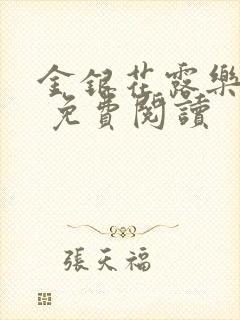 金銀花露樂
免費閱讀
張天福